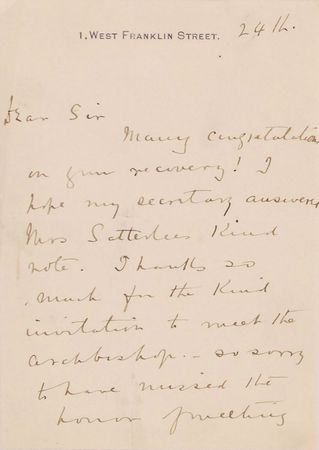 1, WEST FRANKLIN STREET.
24th.
Dear Sir
Many congratulations
on your recovery! I
hope my secretary answered
Mrs Satterlees Kind
note. Thanks so
much for the Kind
invitation to meet the
archbishop. - so sorry
to have missed the
honor of meeting